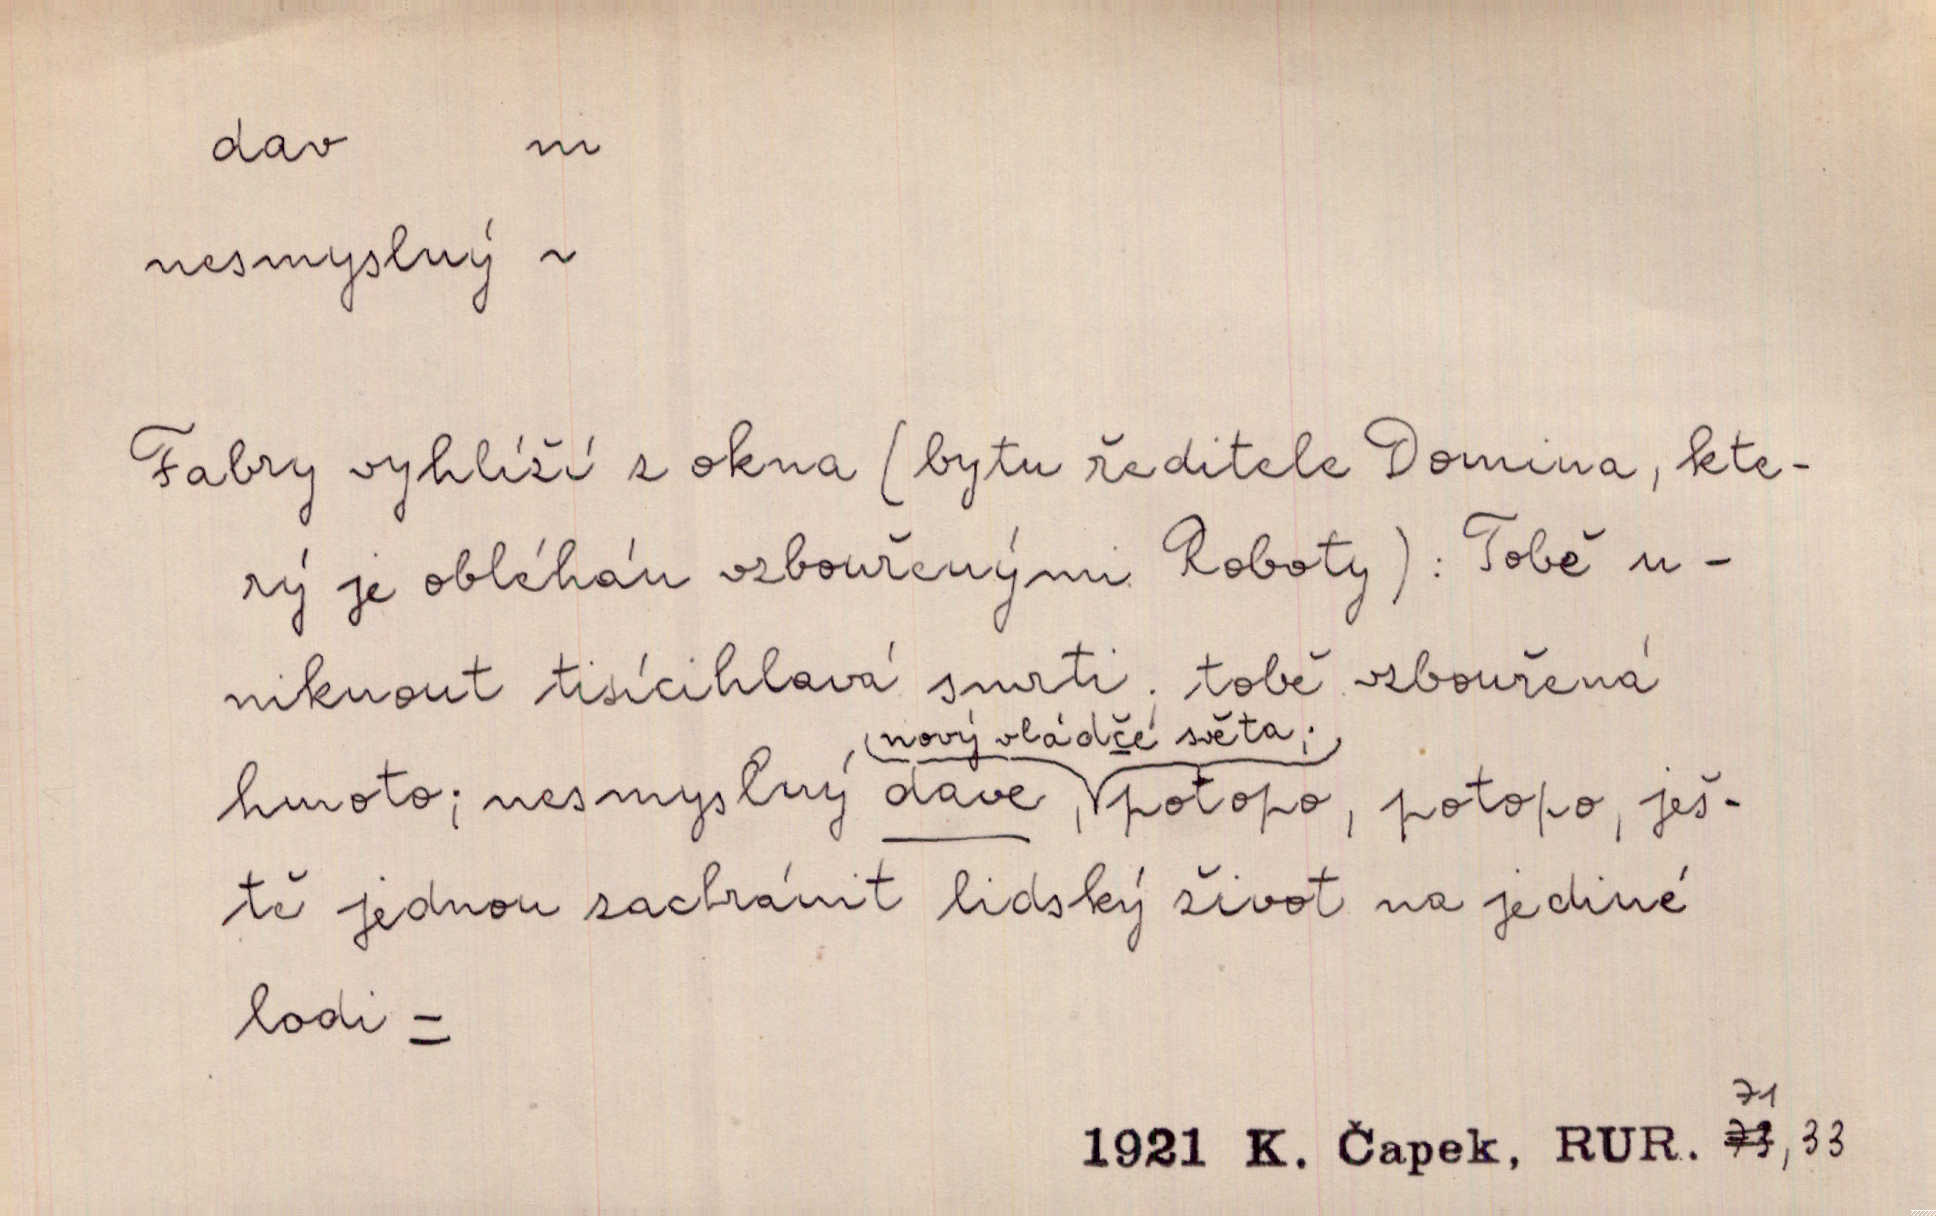 dav m
nesmyslný ~
Fabry vyhlíží z okna (bytu ředitele Domina, kte-
rý je obléhán vzbouřenými Roboty): Tobě u-
niknout tisícihlavá smrti; tobě vzbouřená
(nový vládče světa;)
hmoto; nesmyslný dave, potopo, potopo, ješ-
tě jednou zachránit lidský život na jediné
lodi =
71
1921 K. Čapek, RUR. 73, 33